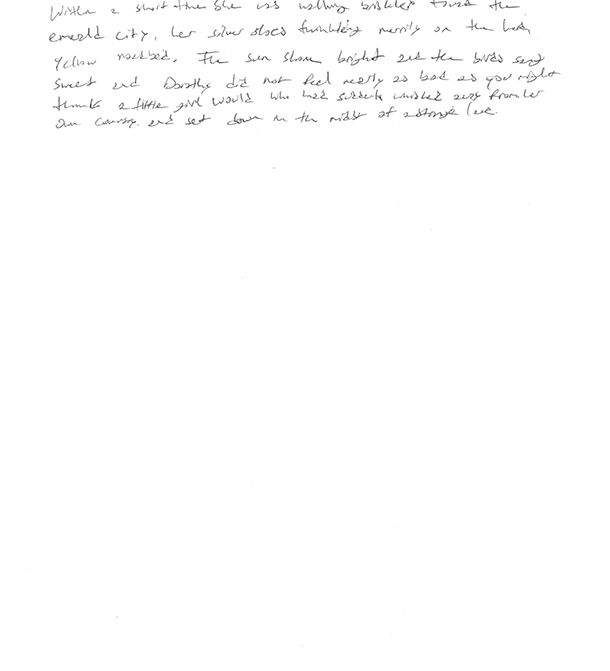 Within a short time she was walking briskly toward the
emerald city, her silver shoes tinkling merrily on the hard,
yellow roadbed. The sun shone bright and the birds sang
sweet and Dorothy did not feel nearly as bad as you might
think a little girl would who had suddenly whisked away from her
own country and set down in the midst of a strange land.